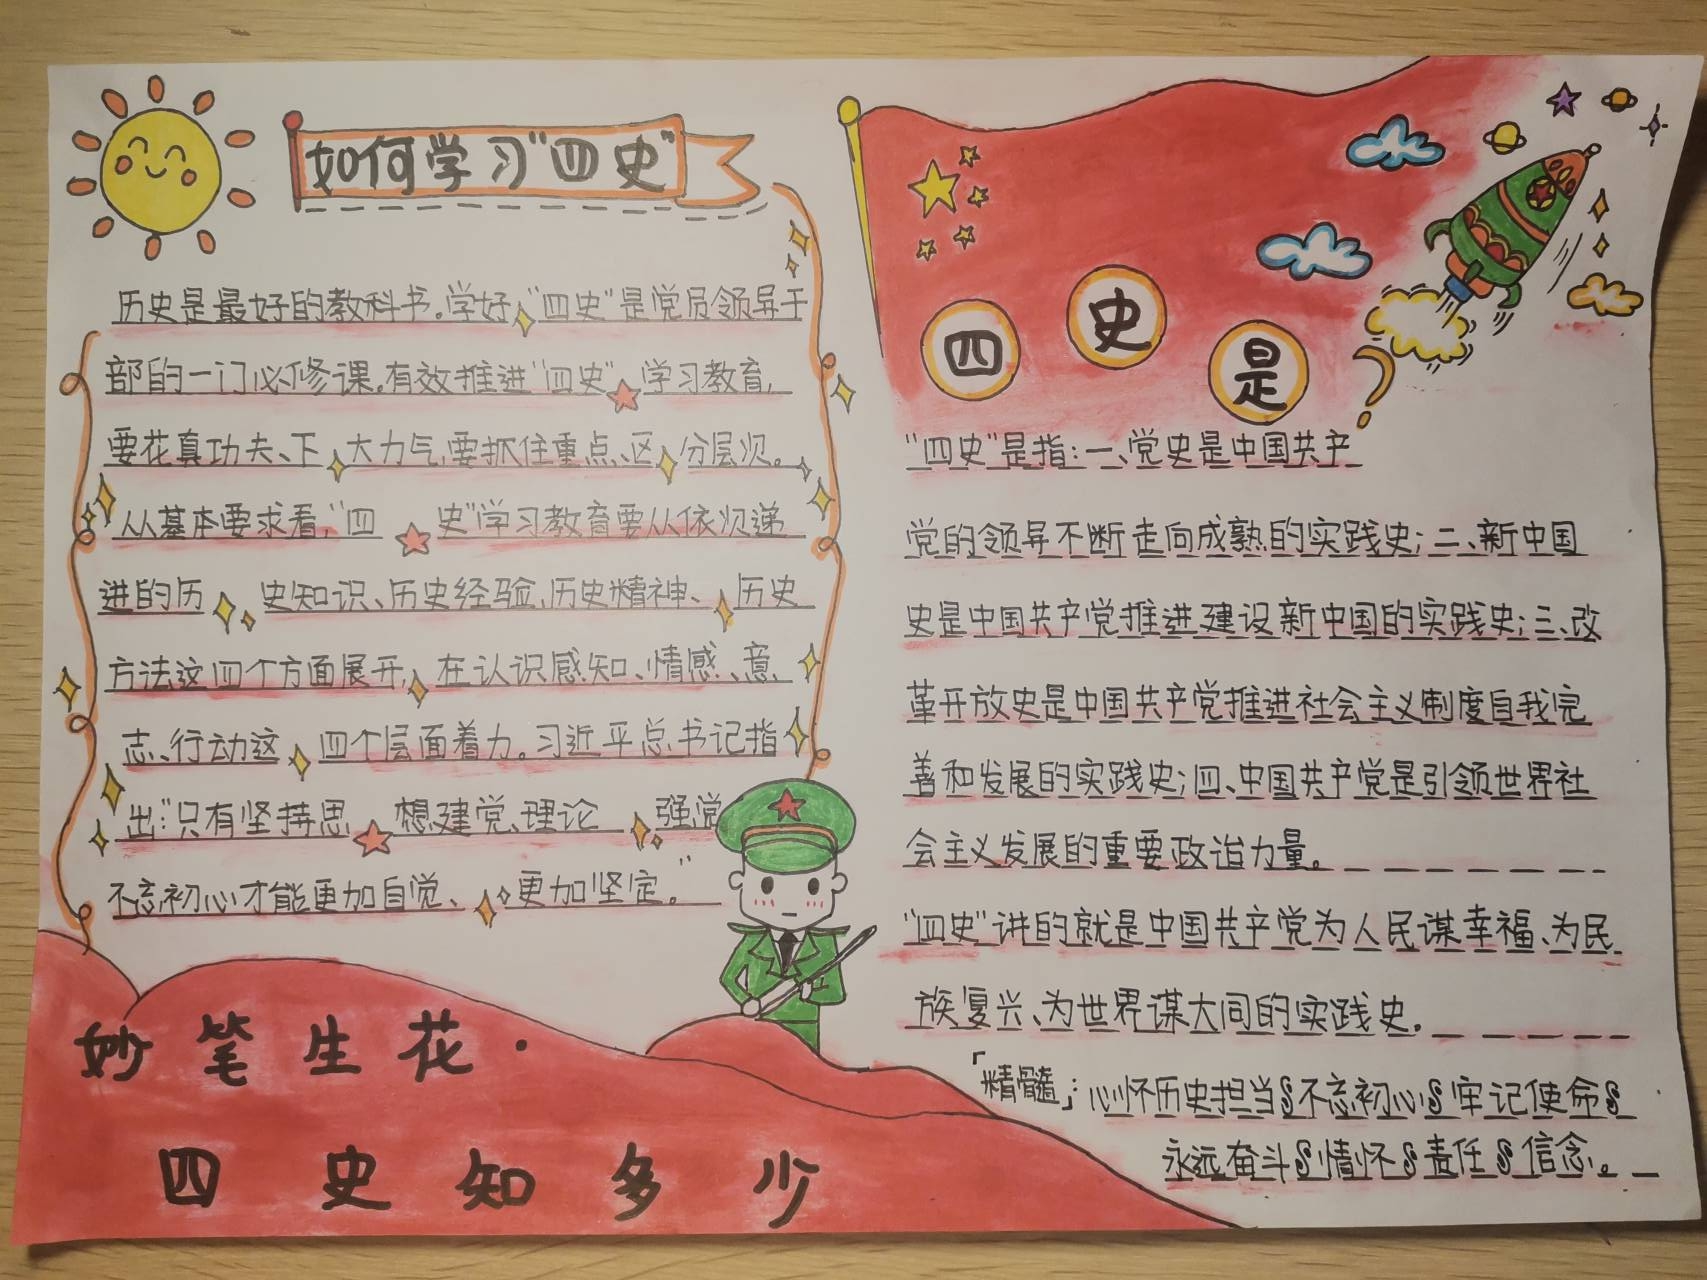 如何学习“四史”
历史是最好的教科书。学好“四史”是党员领导干
部的一门必修课。有效推进“四史”学习教育，
要花真功夫、下大力气，要抓住重点、区分层次。
从基本要求看，“四史”学习教育要从依次递
进的历史知识、历史经验、历史精神、历史
方法这四个方面展开，在认识感知、情感、意
志、行动这四个层面着力。习近平总书记指
出：“只有坚持思想建党、理论强党
不忘初心才能更加自觉、更加坚定。”
妙笔生花·
四史知多少
四史是？
“四史”是指：一、党史是中国共产
党的领导不断走向成熟的实践史；二、新中国
史是中国共产党推进建设新中国的实践史；三、改
革开放史是中国共产党推进社会主义制度自我完
善和发展的实践史；四、中国共产党是引领世界社
会主义发展的重要政治力量。
“四史”讲的就是中国共产党为人民谋幸福、为民
族复兴、为世界谋大同的实践史。
「精髓」：心怀历史担当§不忘初心§牢记使命§
永远奋斗§情怀§责任§信念。